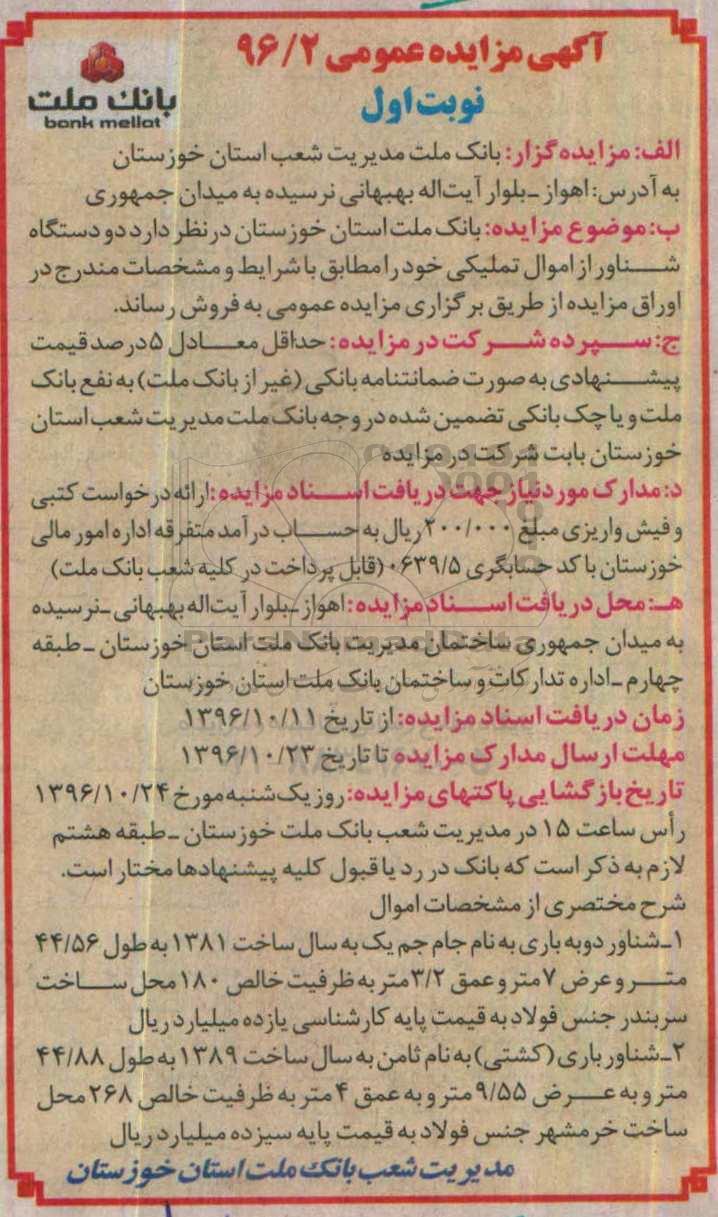 آگهی مزایده عمومی ۹۶/۲
نوبت اول
بانک ملت
bank mellat
الف: مزایده گزار: بانک ملت مدیریت شعب استان خوزستان
به آدرس: اهواز ـ بلوار آیت‌اله بهبهانی نرسیده به میدان جمهوری
ب: موضوع مزایده: بانک ملت استان خوزستان در نظر دارد دو دستگاه
شناور از اموال تملیکی خود را مطابق با شرایط و مشخصات مندرج در
اوراق مزایده از طریق برگزاری مزایده عمومی به فروش رساند.
ج: سپرده شرکت در مزایده: حداقل معادل ۵ درصد قیمت
پیشنهادی به صورت ضمانتنامه بانکی (غیر از بانک ملت) به نفع بانک
ملت و یا چک بانکی تضمین شده در وجه بانک ملت مدیریت شعب استان
خوزستان بابت شرکت در مزایده
د: مدارک مورد نیاز جهت دریافت اسناد مزایده: ارائه درخواست کتبی
و فیش واریزی مبلغ ۲۰۰/۰۰۰ ریال به حساب درآمد متفرقه اداره امور مالی
خوزستان با کد حسابگری ۰۶۳۹/۵ (قابل پرداخت در کلیه شعب بانک ملت)
هـ: محل دریافت اسناد مزایده: اهواز ـ بلوار آیت‌اله بهبهانی ـ نرسیده
به میدان جمهوری ساختمان مدیریت بانک ملت استان خوزستان ـ طبقه
چهارم ـ اداره تدارکات و ساختمان بانک ملت استان خوزستان
زمان دریافت اسناد مزایده: از تاریخ ۱۳۹۶/۱۰/۱۱
مهلت ارسال مدارک مزایده تا تاریخ ۱۳۹۶/۱۰/۲۳
تاریخ بازگشایی پاکتهای مزایده: روز یک‌شنبه مورخ ۱۳۹۶/۱۰/۲۴
رأس ساعت ۱۵ در مدیریت شعب بانک ملت خوزستان ـ طبقه هشتم
لازم به ذکر است که بانک در رد یا قبول کلیه پیشنهادها مختار است.
شرح مختصری از مشخصات اموال
۱ـ شناور دوبه باری به نام جام جم یک به سال ساخت ۱۳۸۱ به طول ۴۴/۵۶
متر و عرض ۷ متر و عمق ۳/۲ متر به ظرفیت خالص ۱۸۰ محل ساخت
سربندر جنس فولاد به قیمت پایه کارشناسی یازده میلیارد ریال
۲ـ شناور باری (کشتی) به نام ثامن به سال ساخت ۱۳۸۹ به طول ۴۴/۸۸
متر و به عرض ۹/۵۵ متر و به عمق ۴ متر به ظرفیت خالص ۲۶۸ محل
ساخت خرمشهر جنس فولاد به قیمت پایه سیزده میلیارد ریال
مدیریت شعب بانک ملت استان خوزستان